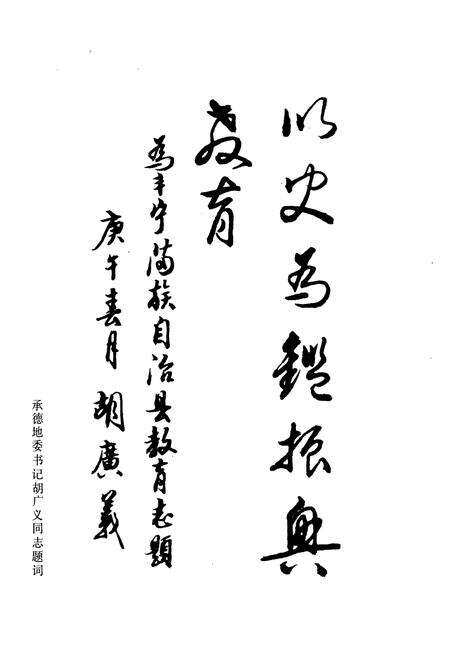 以史为鑑振興
教育
為丰宁满族自治县教育志题
庚午春月 胡廣義
承德地委书记胡广义同志题词